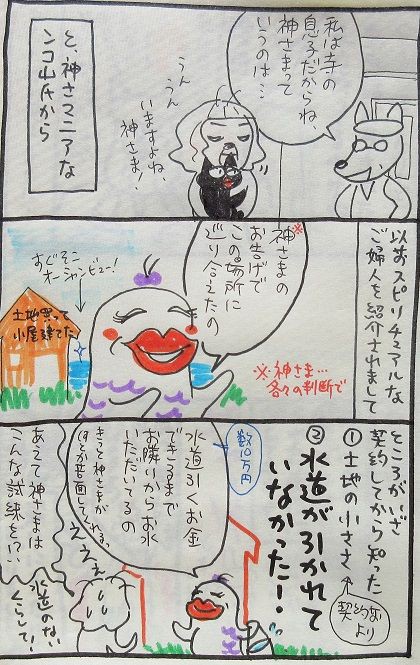 私は寺の
息子だからね、
神さまって
いうのは…
うん
うん
いますよね、
神さま！
と、神さマニアな
ンコ山氏から
以前スピリチュアルな
ご婦人を紹介されまして
※
神さまの
お告げで
この場所に
巡り合えたの
すぐそこ
オーシャンビュー！
土地買って
小屋建てた
※神さま…
各々の判断で
ところがいざ
契約してから知った
①土地の小ささ
契約書
より
②水道が引かれて
いなかった！
数10万円
水道引くお金
できるまで
お隣りからお水
いただいてるの
きっと神さまが
えええ
あえて神さまは
こんな試練を!?
水道のない
くらして！